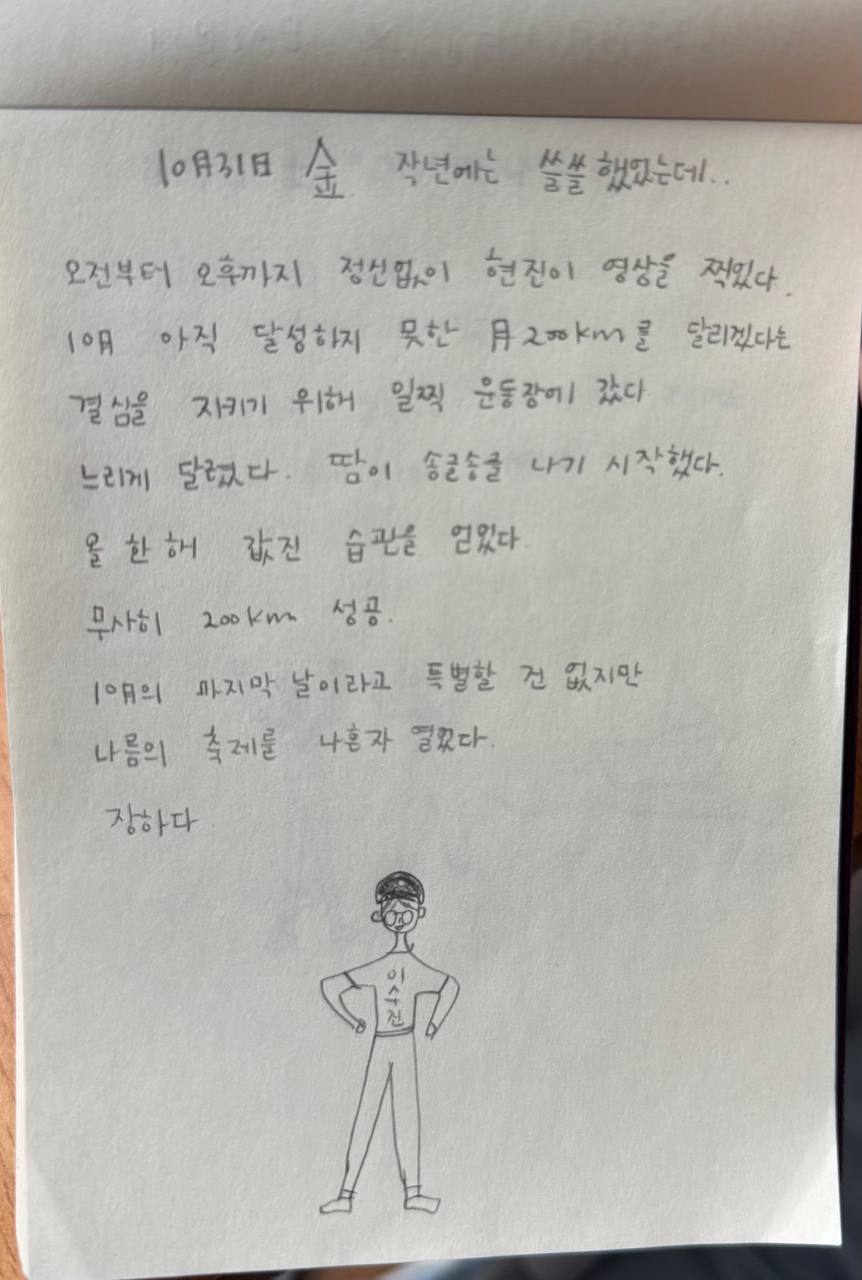 10月31日 金 작년에는 쓸쓸했었는데..
오전부터 오후까지 정신없이 현진이 영상을 찍었다.
10月 아직 달성하지 못한 月200km를 달리겠다는
결심을 지키기 위해 일찍 운동장에 갔다
느리게 달렸다. 땀이 송글송글 나기 시작했다.
올 한 해 값진 습관을 얻었다
무사히 200km 성공.
10月의 마지막 날이라고 특별할 건 없지만
나름의 축제를 나혼자 열었다.
장하다
이
수
진